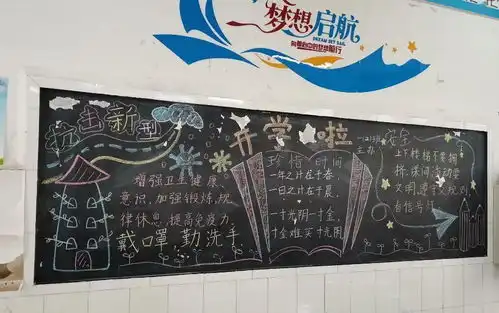 梦想启航
DREAM SET SAIL
向着心中的梦想前行
抗击新型
增强卫生健康
意识,加强锻炼,规
律休息,提高免疫力
戴口罩,勤洗手
开学啦
珍惜时间
一年之计在于春
一日之计在于晨
一寸光阴一寸金
寸金难买寸光阴
主办
安全
上下楼梯不要拥
挤,课间活动要
文明,遵守交规,没
有信号灯